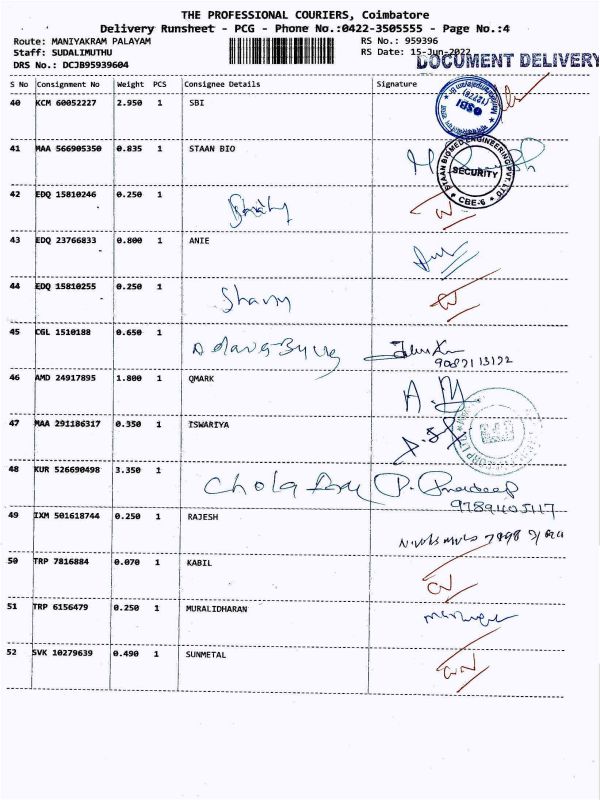 THE PROFESSIONAL COURIERS, Coimbatore
Delivery Runsheet - PCG - Phone No.:0422-3505555 - Page No.:4
Route: MANIYAKRAM PALAYAM RS No.: 959396
Staff: SUDALIMUTHU RS Date: 15-Jun-2022
DOCUMENT DELIVERY
DRS No.: DCJB95939604
S No Consignment No Weight PCS Consignee Details Signature
40 KCM 60052227 2.950 1 SBI
SBI
(12778)
41 MAA 566905350 0.835 1 STAAN BIO
STAAN BIOMED ENGINEERING PVT. LTD
SECURITY
CBE-6
42 EDQ 15810246 0.250 1
43 EDQ 23766833 0.800 1 ANIE
44 EDQ 15810255 0.250 1
45 CGL 1510188 0.650 1
46 AMD 24917895 1.800 1 QMARK
47 MAA 291186317 0.350 1 ISWARIYA
48 KUR 526690498 3.350 1 Chola P. Pradeep
9789405117
49 IXM 501618744 0.250 1 RAJESH
50 TRP 7816884 0.070 1 KABIL
51 TRP 6156479 0.250 1 MURALIDHARAN
52 SVK 10279639 0.490 1 SUNMETAL